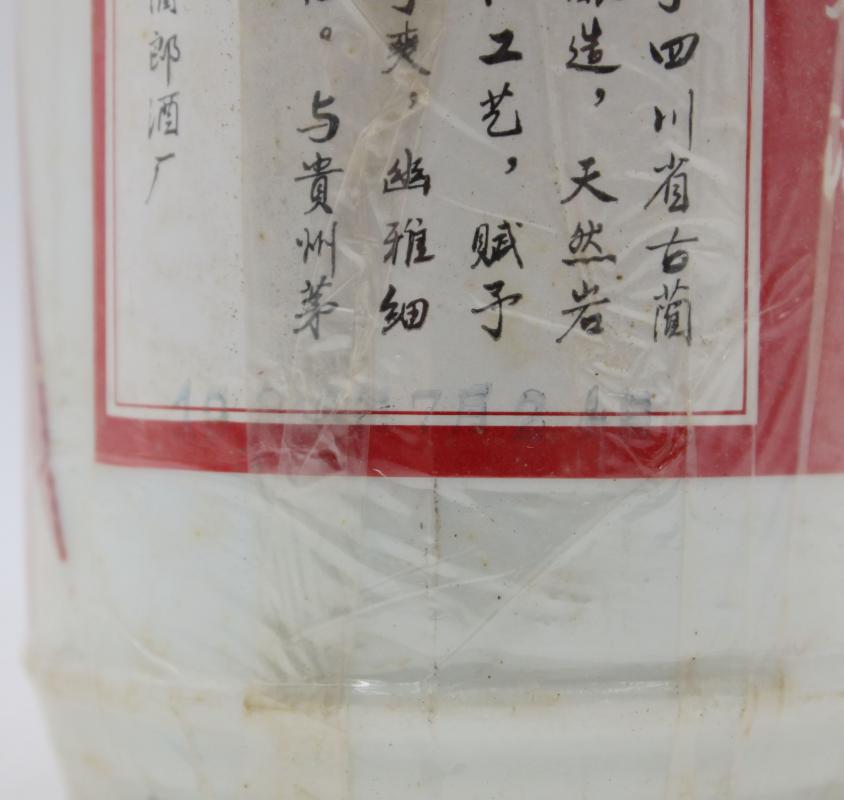 四川省古蔺
造，天然岩
工艺，赋予
爽，幽雅细
。与貴州茅
郎酒厂
7月2